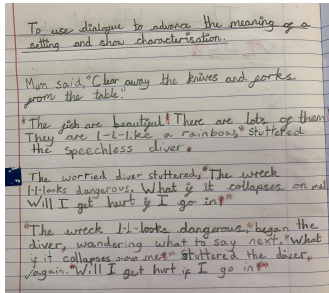 To use dialogue to advance the meaning of a
setting and show characterisation.
Mum said, "Clear away the knives and forks
from the table."
"The fish are beautiful! There are lots of them
They are l-l-like a rainbow," stuttered
the speechless diver.
The worried diver stuttered, "The wreck
l-l-looks dangerous. What if it collapses on me!
Will I get hurt if I go in?"
"The wreck l-l-looks dangerous," began the
diver, wandering what to say next. "What
if it collapses on me?" stuttered the diver,
again. "Will I get hurt if I go in?"